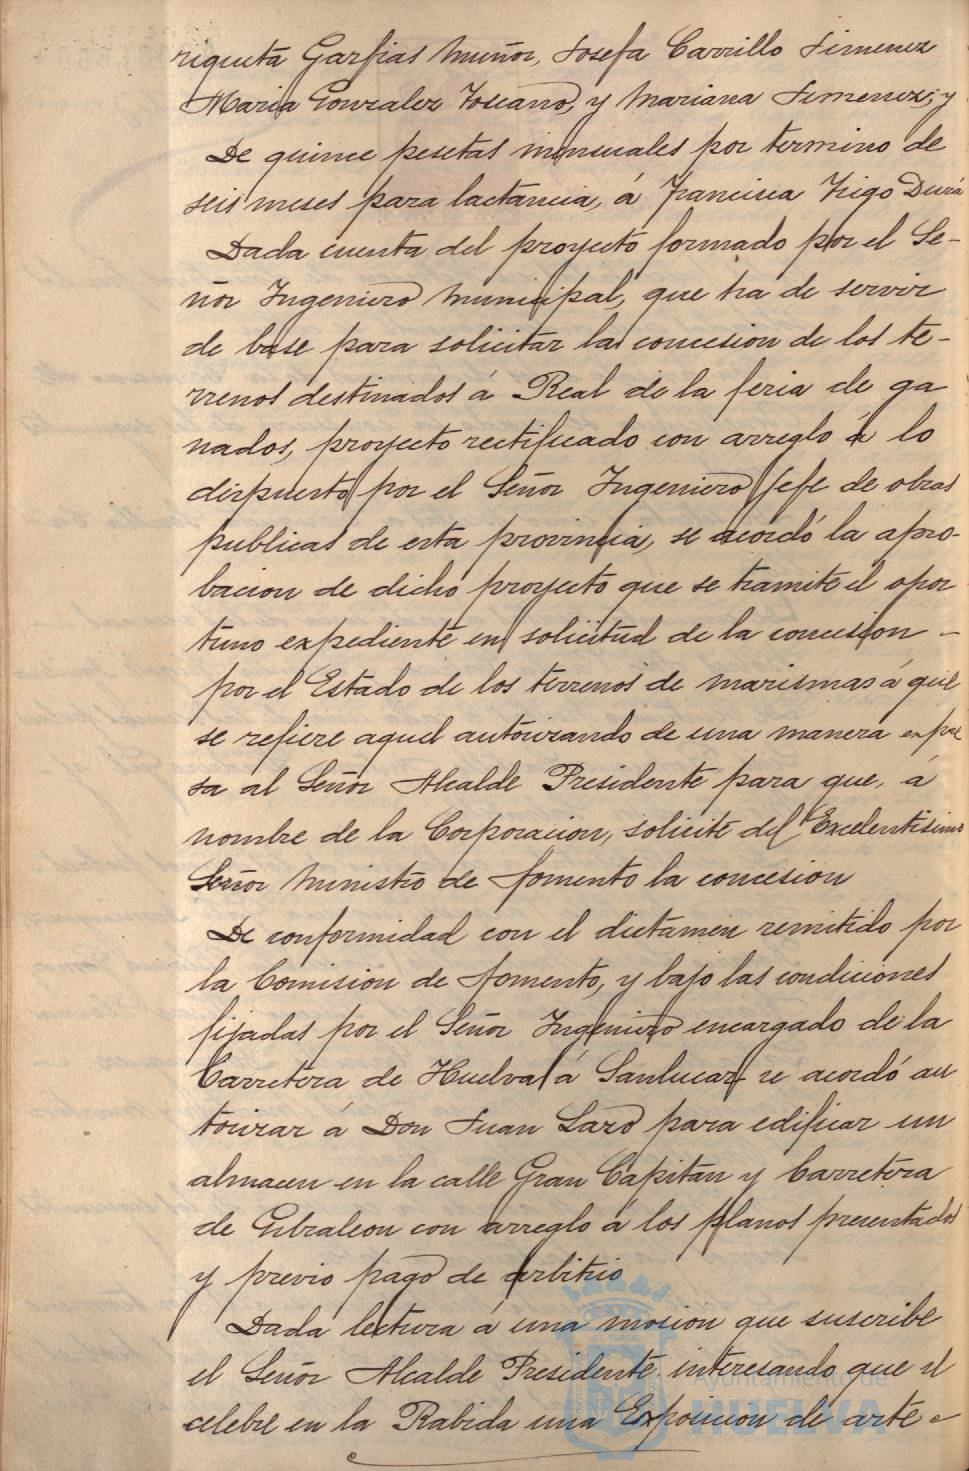 riqueta Garfias Muñoz, Josefa Carrillo Jimenez
Maria Gonzalez Toscano, y Mariana Jimenez; y
De quince pesetas mensuales por termino de
seis meses para lactancia, á Francisca Trigo Durá
Dada cuenta del proyecto formado por el Se-
ñor Ingeniero Municipal, que ha de servir
de base para solicitar la concesion de los te-
rrenos destinados á Real de la feria de ga
nados, proyecto rectificado con arreglo á lo
dispuesto por el Señor Ingeniero Jefe de obras
publicas de esta provincia, se acordó la apro-
bacion de dicho proyecto que se tramite el opor
tuno expediente en solicitud de la concesion -
por el Estado de los terrenos de marismas á que
se refiere aquel autorizando de una manera expre
sa al Señor Alcalde Presidente para que, á
nombre de la Corporacion, solicite del Excelentisimo
Señor Ministro de Fomento la concesion
De conformidad con el dictamen remitido por
la Comision de Fomento, y bajo las condiciones
fijadas por el Señor Ingeniero encargado de la
Carretera de Huelva á Sanlucar se acordó au
torizar á Don Juan Lazo para edificar un
almacen en la calle Gran Capitan y Carretera
de Gibraleon con arreglo á los planos presentados
y previo pago de arbitrio
Dada lectura á una mocion que suscribe
el Señor Alcalde Presidente interesando que se
celebre en la Rabida una Exposicion de arte
Ayuntamiento de
HUELVA